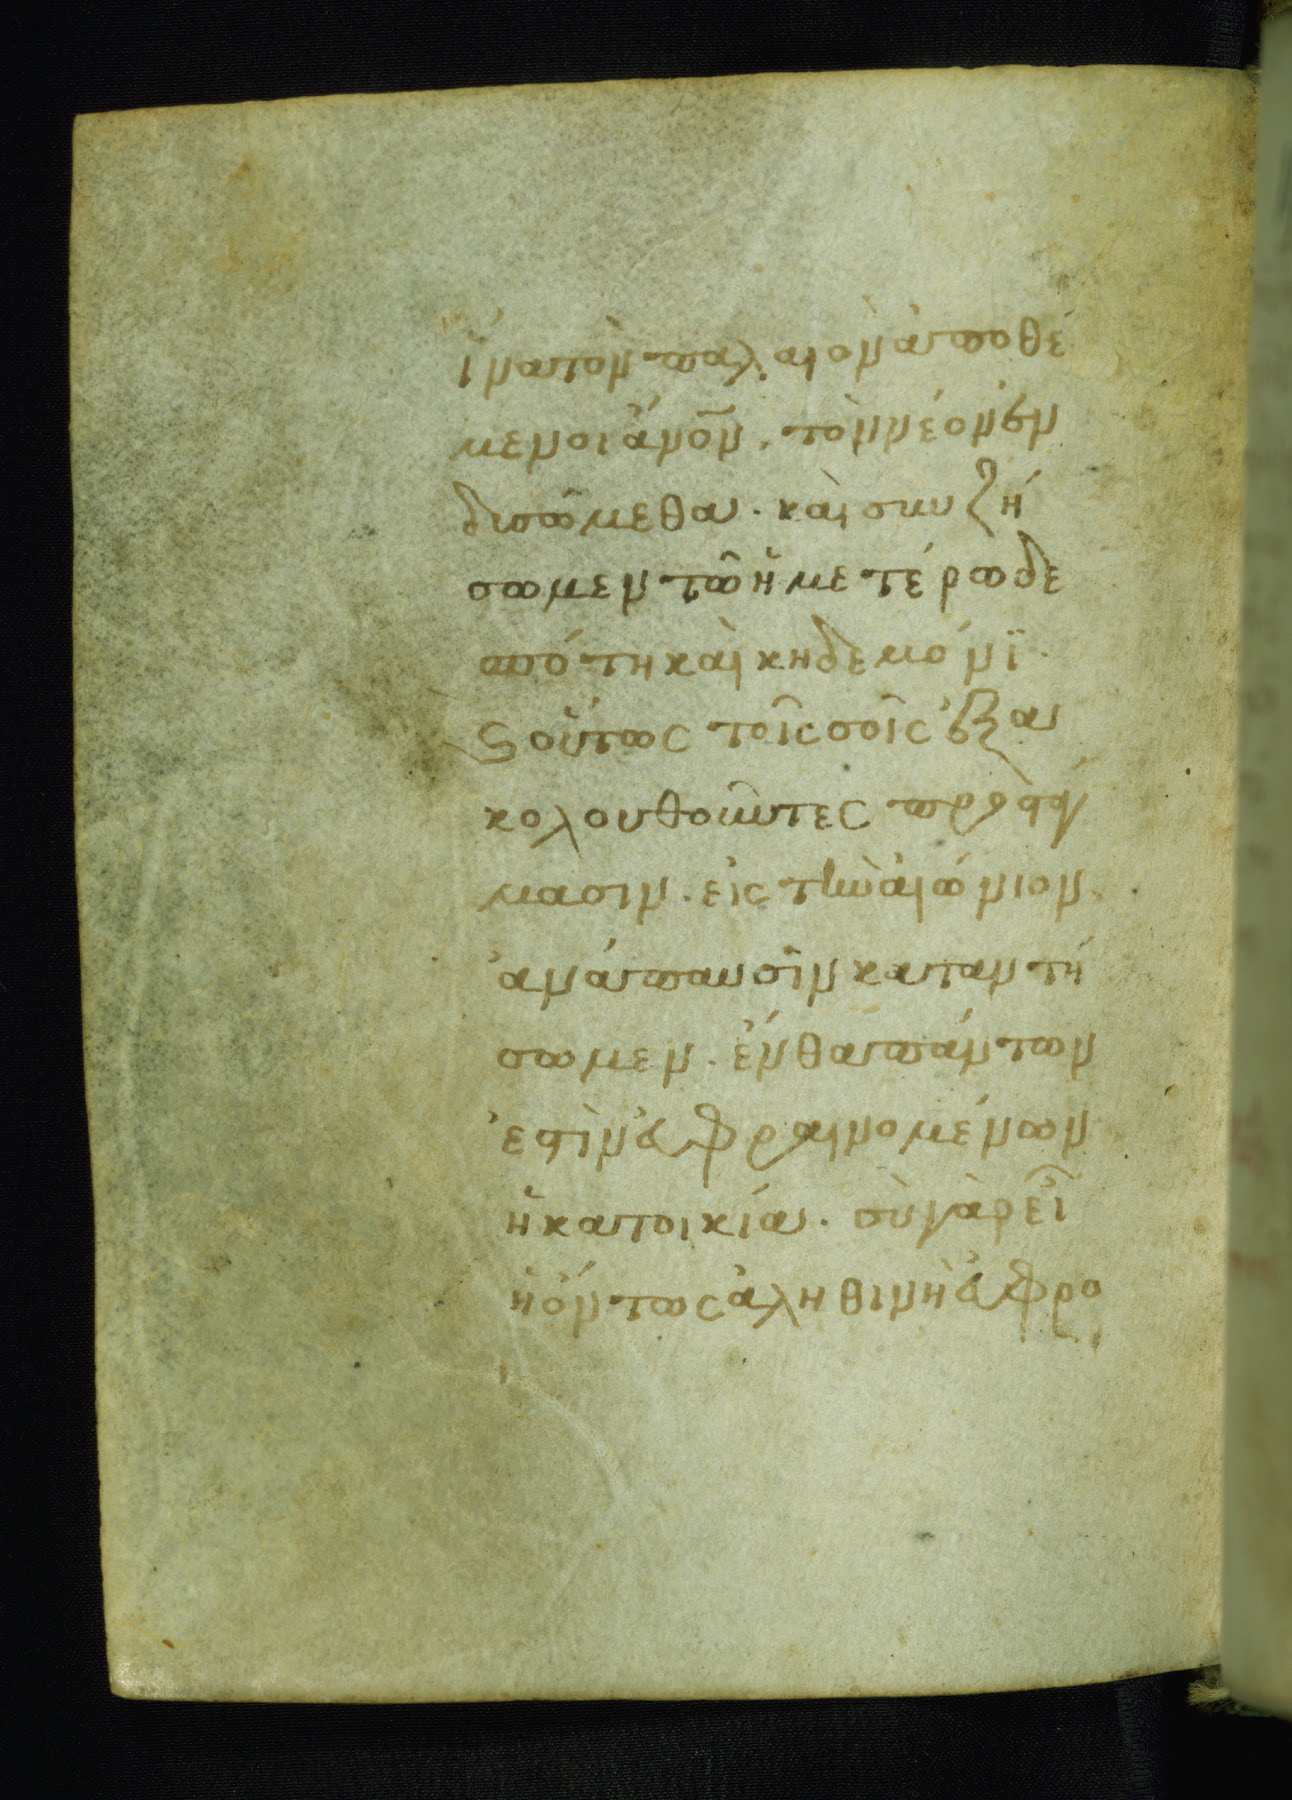 ἵνα τὸν παλαιὸν ἀποθέ
μενοι ἄν̅ον̅· τὸν νέον ἐν
δυσώμεθα. καὶ συν ζή
σωμεν τῶ ἡμετέρω δε
σπότη καὶ κηδεμόνϊ·
ϛ οὕτως τοῖς σοῖς ἐξα
κολουθοῦντες προστάγ
μασιν. εἰς τὴν αἰώνιον
ἀνάπαυσιν καταντή
σωμεν. ἔνθα πάντων
ἐστὶν εὐφραινομένων
ἡ κατοικία. σὺ γὰρ εἶ
ἡ ὄντως ἀληθινὴ εὐφρο